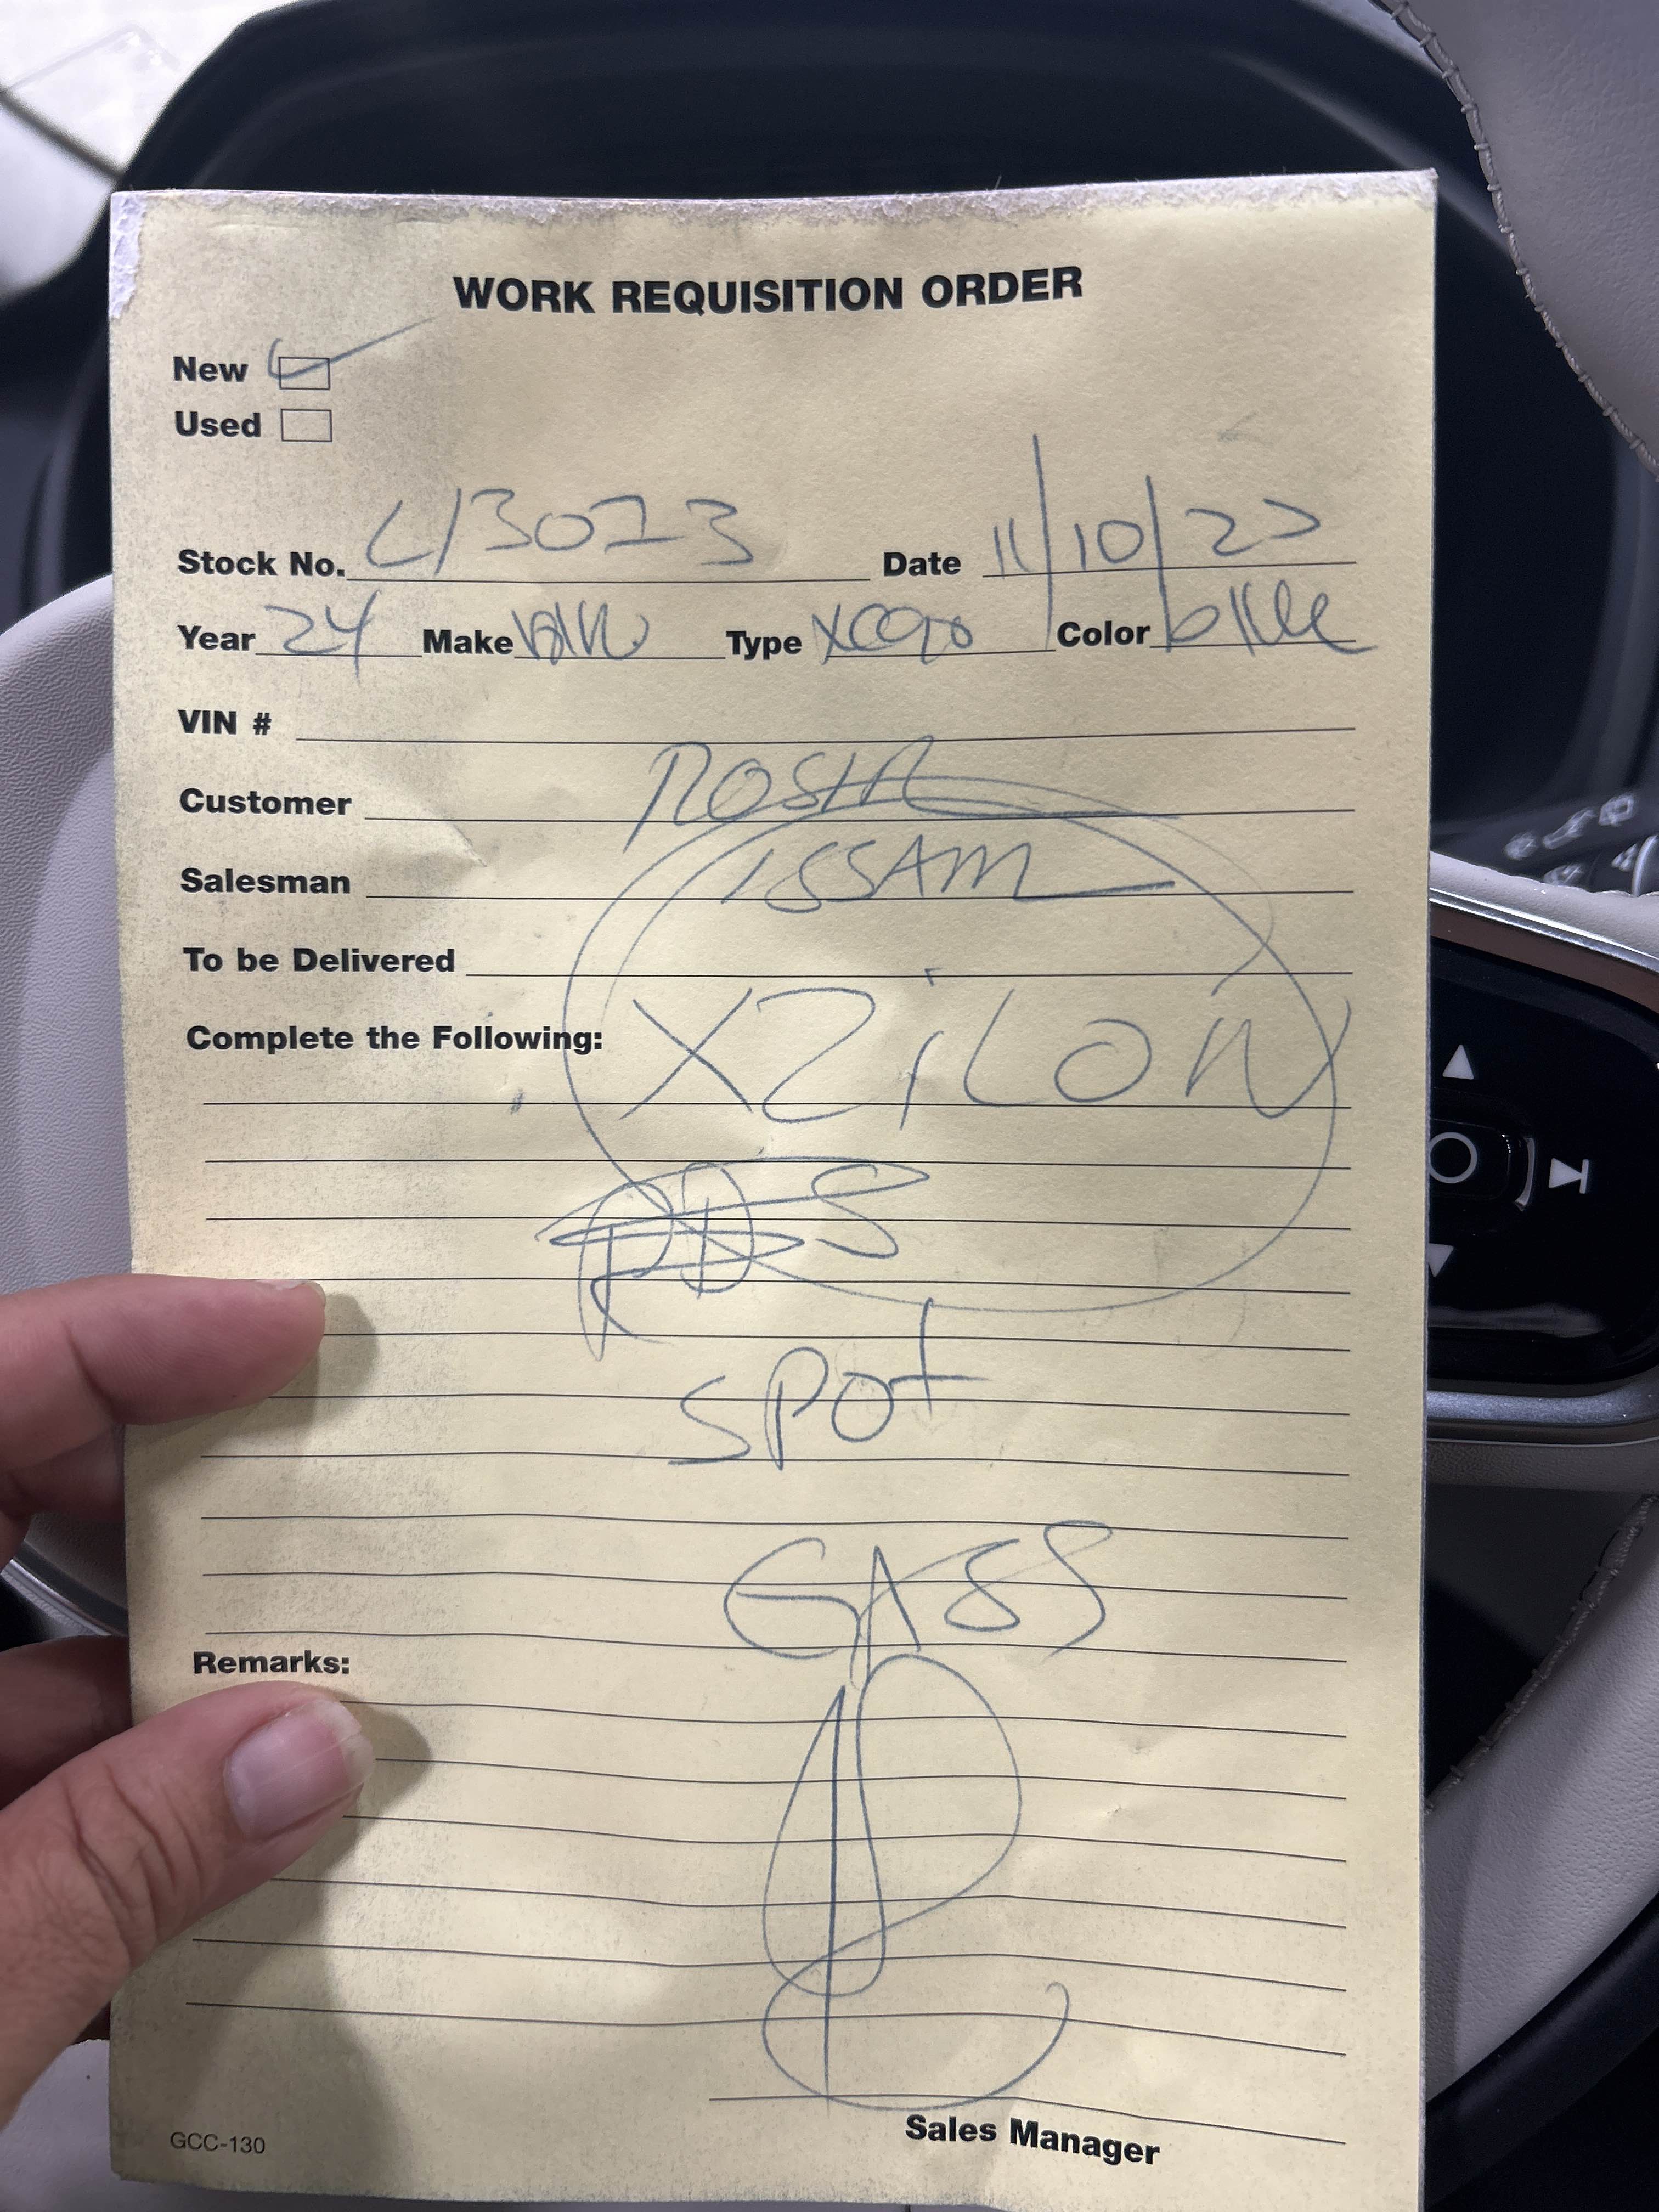 WORK REQUISITION ORDER
New
Used
Stock No. Date 11/10/23
Year 24 Make Type XC90 Color
VIN #
Customer
Salesman ISSAM
To be Delivered
Complete the Following:
XZiLON
PDS
SPOt
GASS
Remarks:
Sales Manager
GCC-130